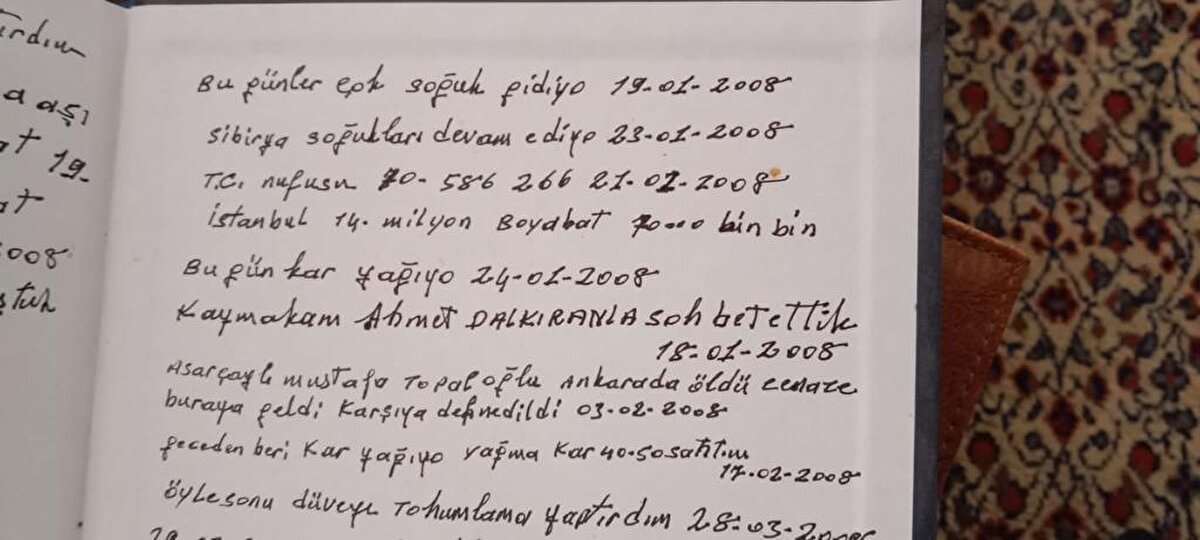 ırdım
a aşı
at 19-
at
2008
ştuk
Bu günler çok soğuk gidiyo 19-01-2008
Sibirya soğukları devam ediyo 23-01-2008
T.C. nufusu 70-586 266 21-01-2008
İstanbul 14. milyon Boyabat 70000 bin bin
Bu gün kar yağıyo 24-01-2008
Kaymakam Ahmet DALKIRANLA sohbet ettik
18-01-2008
Asarcaylı mustafa TOPaloğlu Ankarada öldü cenaze
buraya geldi Karşıya defnedildi 03-02-2008
geceden beri Kar yağıyo yağma Kar 40-50
17-02-2008
öylesonu düveye Tohumlama yaptırdım 28-03-2008